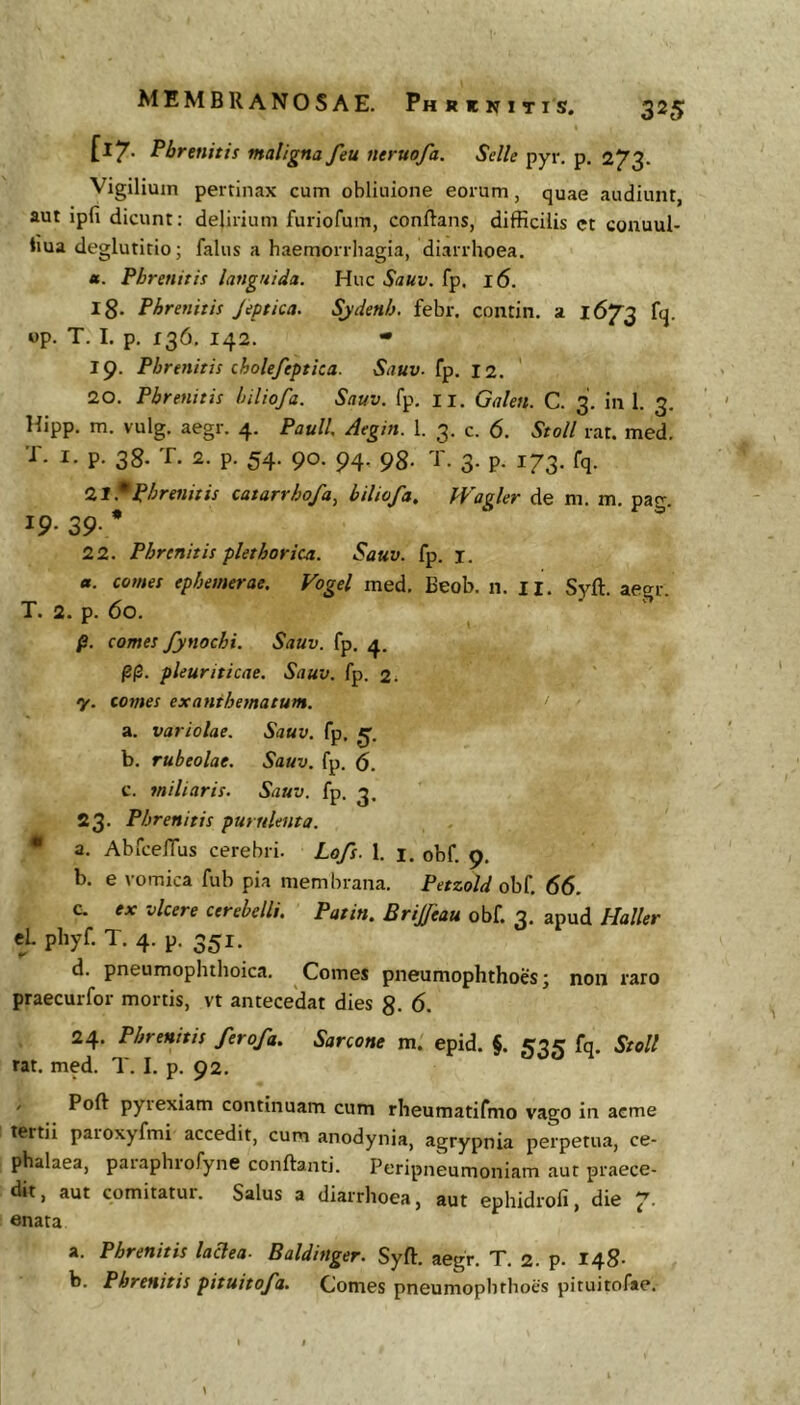 MEMBRANOSAE. PHRENITIS. 325
[17. Phrenitis maligna ſeu neruoſa. Selle pyr. p. 273.
Vigilium pertinax cum obliuione eorum, quae audiunt,
aut ipſi dicunt: delirium furioſum, conſtans, difficilis et conuul-
ſiua deglutitio; ſalus a haemorrhagia, diarrhoea.
α. Phrenitis languida. Huc Sauv. ſp. 16.
18. Phrenitis ſeptica. Sydenh. febr. contin. a 1673 ſq.
op. T. I. p. 136. 142.
19. Phrenitis choleſeptica. Sauv. ſp. 12.
20. Phrenitis bilioſa. Sauv. ſp. 11. Galen. C. 3. in l. 3.
Hipp. m. vulg. aegr. 4. Paull. Aegin. l. 3. c. 6. Stoll rat. med.
T. 1. p. 38. T. 2. p. 54. 90. 94. 98. T. 3. p. 173. ſq.
21.* Phrenitis catarrhoſa, bilioſa. Wagler de m. m. pag.
19. 39. *
22. Phrenitis plethorica. Sauv. ſp. 1.
α. comes ephemerae. Vogel med. Beob. n. 11. Syſt. aegr.
T. 2. p. 60.
β. comes ſynochi. Sauv. ſp. 4.
ββ. pleuriticae. Sauv. ſp. 2.
γ. comes exanthematum.
a. variolae. Sauv. ſp. 5.
b. rubeolae. Sauv. ſp. 6.
c. miliaris. Sauv. ſp. 3.
23. Phrenitis purulenta.
* a. Abſceſſus cerebri. Loſs. l. 1. obſ. 9.
b. e vomica ſub pia membrana. Petzold obſ. 66.
c. ex vlcere cerebelli. Patin. Briſſeau obſ. 3. apud Haller
el. phyſ. T. 4. p. 351.
d. pneumophthoica. Comes pneumophthoës; non raro
praecurſor mortis, vt antecedat dies 8. 6.
24. Phrenitis ſeroſa. Sarcone m. epid. §. 535 ſq. Stoll
rat. med. T. I. p. 92.
Poſt pyrexiam continuam cum rheumatiſmo vago in acme
tertii paroxyſmi accedit, cum anodynia, agrypnia perpetua, ce-
phalaea, paraphroſyne conſtanti. Peripneumoniam aut praece-
dit, aut comitatur. Salus a diarrhoea, aut ephidroſi, die 7.
enata
a. Phrenitis lactea. Baldinger. Syſt. aegr. T. 2. p. 148.
b. Phrenitis pituitoſa. Comes pneumophthoës pituitoſae.